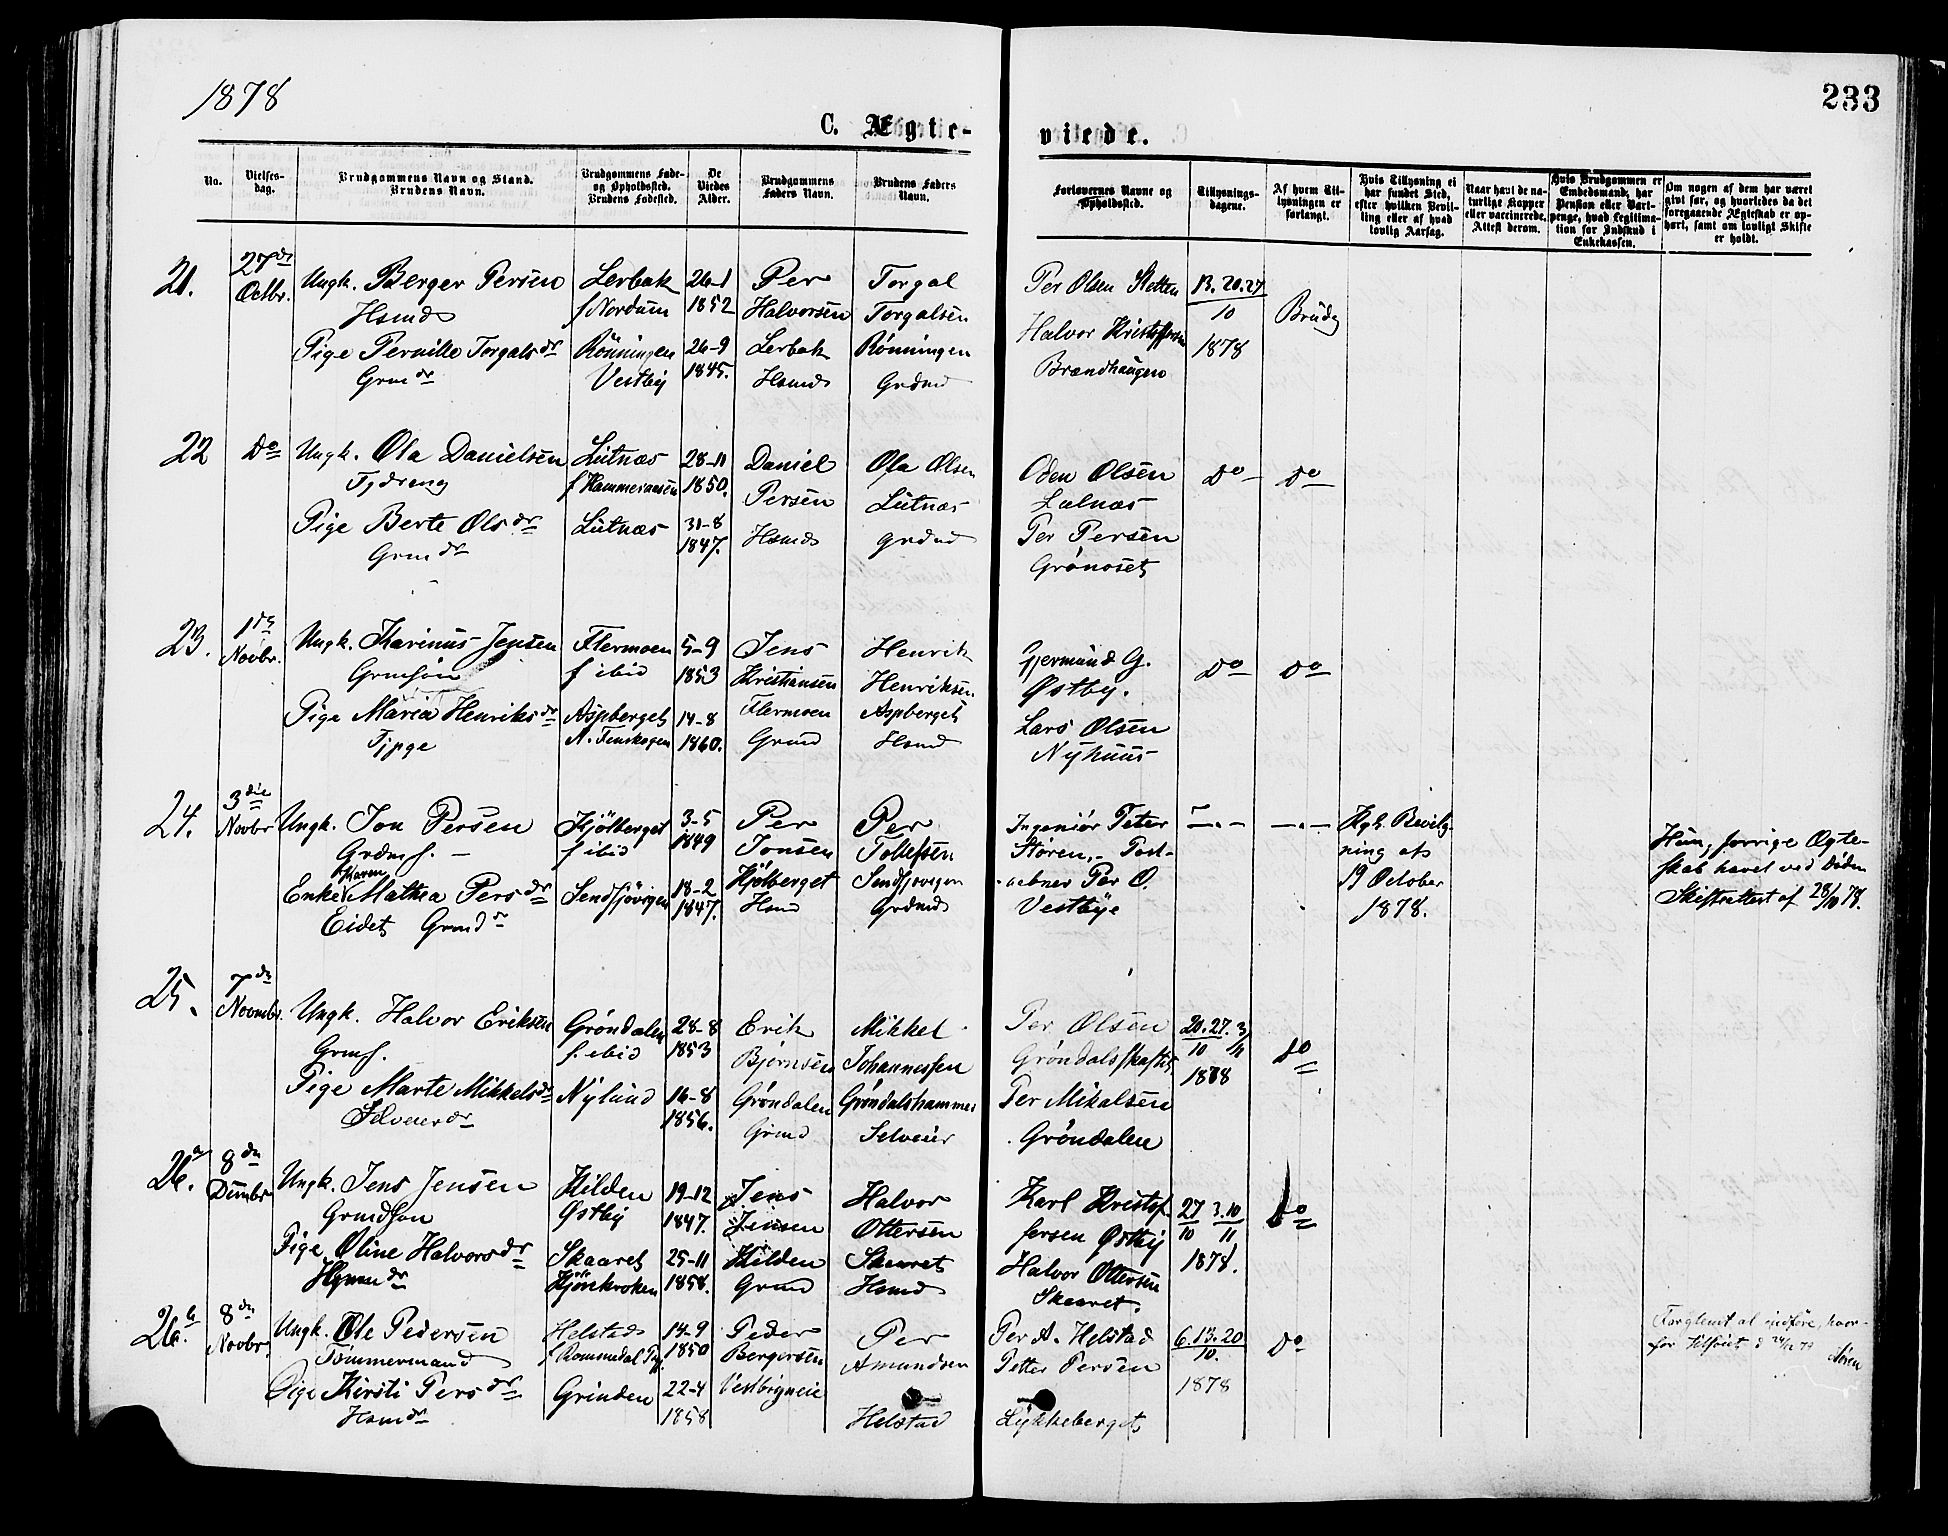 1878
233
C. Ægte-
viede.
No.
Vielses-
dag.
Brudgommens Navn og Stand.
Brudens Navn.
Brudgommens Føde-
og Opholdssted.
Brudens Fødested.
De
Viedes
Alder.
Brudgommens
Faders Navn.
Brudens Faders
Navn.
Forlovernes Navne og
Opholdssted.
Tillysnings-
dagene.
Af hvem Til-
lysningen er
forlangt.
Hvis Tillysning ei
har fundet Sted,
efter hvilken Bevil-
ling eller af hvad
lovlig Aarsag.
Naar havt de na-
turlige Kopper
eller vaccinerede.
Attest derom.
Hvis Brudgommen er
Embedsmand, har
Pension eller Vart-
penge, hvad Legitima-
tion for Indskud i
Enkekassen.
Om nogen af dem har været
gift før, og hvorledes da det
foregaaende Ægteskab er op-
hørt, samt om lovligt Skifte
er holdt.
21.
27de
Octbr.
Ungk. Berger Persen
Hsmds
Pige Pernille Torgalsdr
Grmdr
Lerbak
f Nordum
Rönningen
Vestby
26-1
1852
26-9
1845.
Per
Halvorsen
Lerbak
Hsmds
Torgal
Torgalsen
Rönningen
Grdmd
Per Olsen Sletten
Halvor Kristoffersen
Brændhaugen
13. 20. 27
10
1878
Brudg
22
Do
Ungk. Ola Danielsen
Pige Berte Olsdr
Grmdr
Lutnæs
f Hammernesen
Lutnæs
28-11
1850.
31-8
1847.
Daniel
Persen
Hsmds
Ola Olsen
Lutnæs
grdmd
Oden Olsen
Lutnæs
Per Persen
Grönoset
Do
Do
23.
1ste
Novbr.
Ungk. Karinus Jensen
Grmsön
Pige Maria Henriksdr
Tjpge
Flermoen
f ibid
Aspberget
N. Finskogen
5-9
1853
14-8
1860.
Jens
Kristiansen
Flermoen
Grmd
Henrik
Henriksen
Aspberget
Hsmd
Gjermund G.
Østby.
Lars Olsen
Nyhuus
Do
Do
24.
3die
Novbr
Ungk. Jon Persen
Grdmsf. –
Karen
Enke Mathea Persdr
Eidet Grmdr
Kjölberget
f ibid
Sendsjövigen
3-5
1849
18-2
1847.
Per
Jonsen
Kjölberget
Hsmd
Per
Tollefsen
Sendsjovigen
Grdmds
Ingeniör Peter
Stören,– Post-
aabner Per O.
Vestbye
–.–
–.–
Kgl. Bevilg-
ning af
19 October
1878.
Hun, forrige Ægte-
skab hævet ved Döden
Skifteattest af 28/10 78.
25.
7de
Novmbr.
Ungk. Halvor Eriksen
Grmsf.
Pige Marte Mikkelsdr
Selveierdr
Gröndalen
f. ibid
Nylund
28-8
1853
16-8
1856.
Erik
Bjørnsen
Gröndalen
Grmd
Mikkel
Johannessen
Gröndalshammer
Selveier
Per Olsen
Gröndalsskaftet
Per Mikalsen
Gröndalen
20. 27. 3/
10 11
1878
do
26.a
8de
Ungk. Jens Jensen
Grmdsøn
Pige Oline Halvorsdr
Kilden
Østby
Skaaret
Kjönskroken
19-12
1847.
25-11
1858.
Jens
Jensen
Kilden
Grmd
Halvor
Ottersen
Skaaret
Hsmd
Karl Kristof
fersen Østby
Halvor Ottersen
Skaaret.
27 3.10
10 11
1878.
Do
26.b
8de
Novbr.
Ungk. Ole Pedersen
Tömmermand
Pige Kirsti Persdr
Hsmdr
Helstad
f Rommedal Pgj.
Grinden
14-9
1850
22-4
1858
Peder
Bergersen
Vestbygneie
Per
Amundsen
Helstad
Per A. Helstad
Petter Persen
Lykkeberget
6. 13. 20
10.
1878
Do
Forglemt at indföre, hvor-
for tilföiet d 24/12 79
Stören